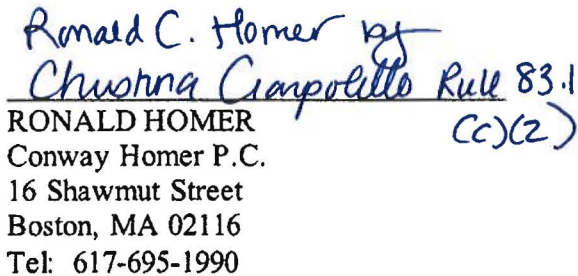 Ronald C. Homer by
Christina Ciampolillo Rule 83.1
(c)(2)
RONALD HOMER
Conway Homer P.C.
16 Shawmut Street
Boston, MA 02116
Tel: 617-695-1990